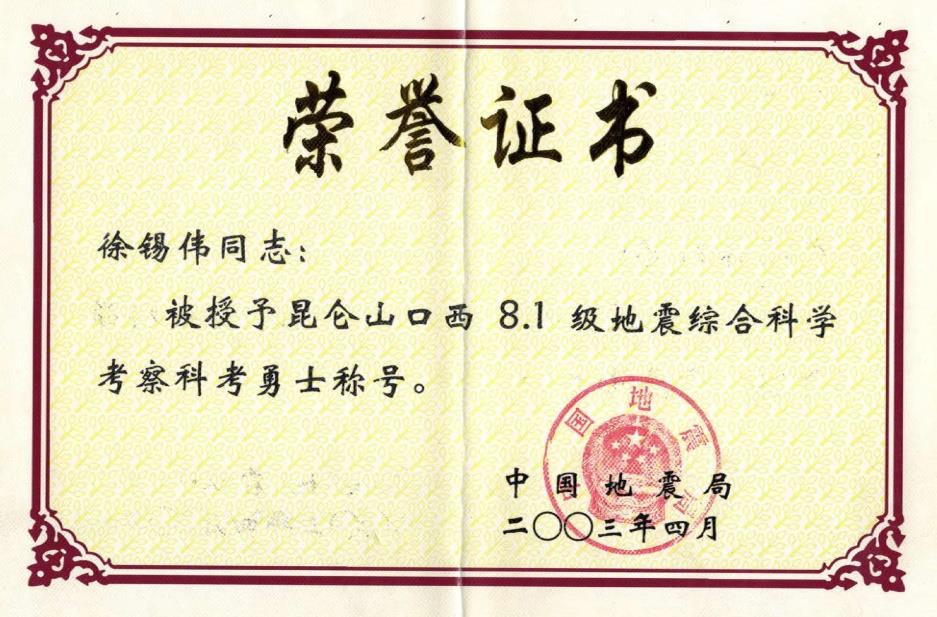 荣誉证书
徐锡伟同志：
被授予昆仑山口西 8.1 级地震综合科学
考察科考勇士称号。
国地震局
中国地震局
二〇〇三年四月